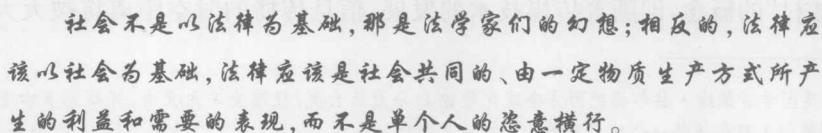 社会不是以法律为基础,那是法学家们的幻想;相反的,法律应
该以社会为基础,法律应该是社会共同的、由一定物质生产方式所产
生的利益和需要的表现,而不是单个人的恣意横行。